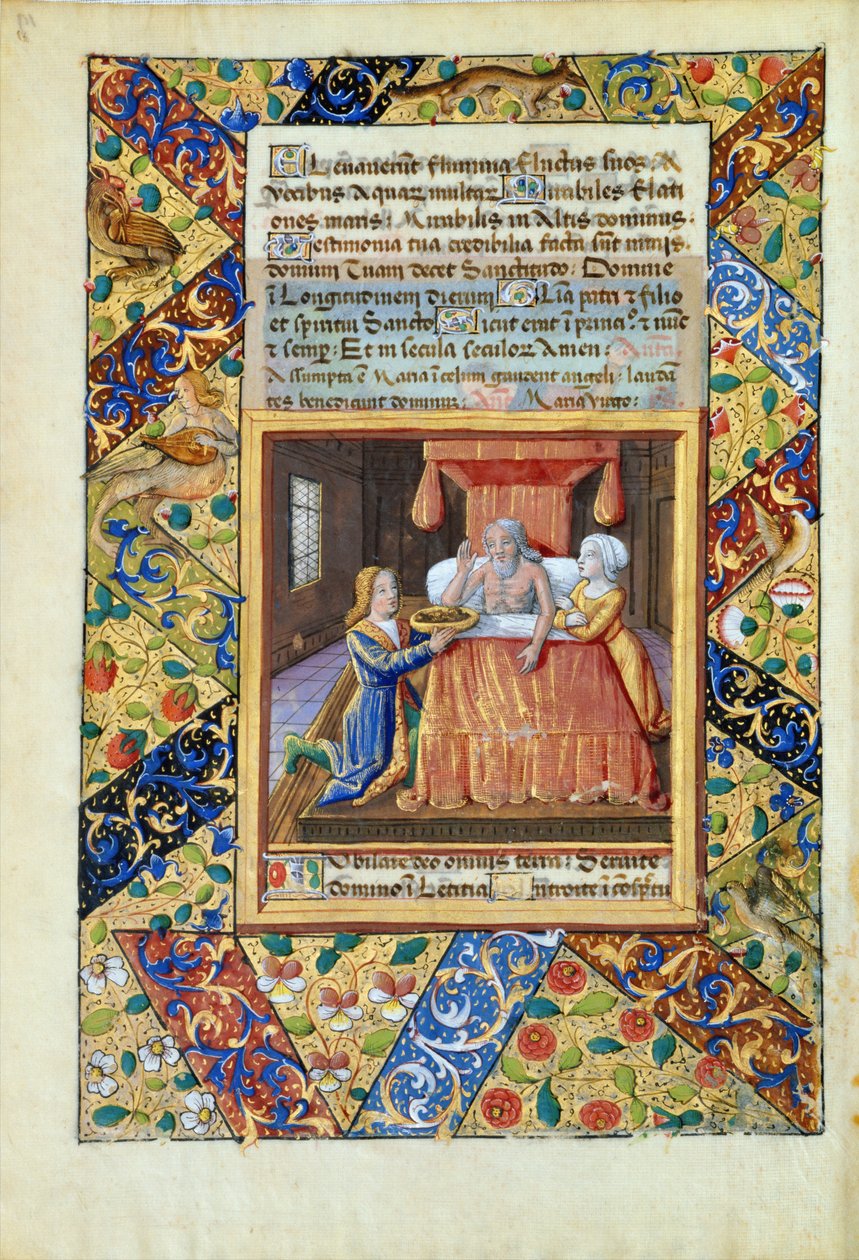 Elevaverunt flumina fluctus suos: A
vocibus Aquar multar Mirabiles Elati
ones maris: Mirabilis in Altis dominus.
Testimonia tua credibilia facta sũt nimis.
domum Tuam decet Sanctitudo: Domine
ĩ Longitudinem dierum Glia patri & filio
et spiritui Sancto Sicut erat ĩ princio. & nũc
& semp: Et in secula seculor Amen: Antã.
Assumpta ẽ Maria ĩ celum gaudent angeli: laudã
tes benedicunt dominum: Añ. Maria Virgo: ps.
IVbilate deo omnis terra: Servite
domino ĩ Letitia Introite ĩ cõspctu